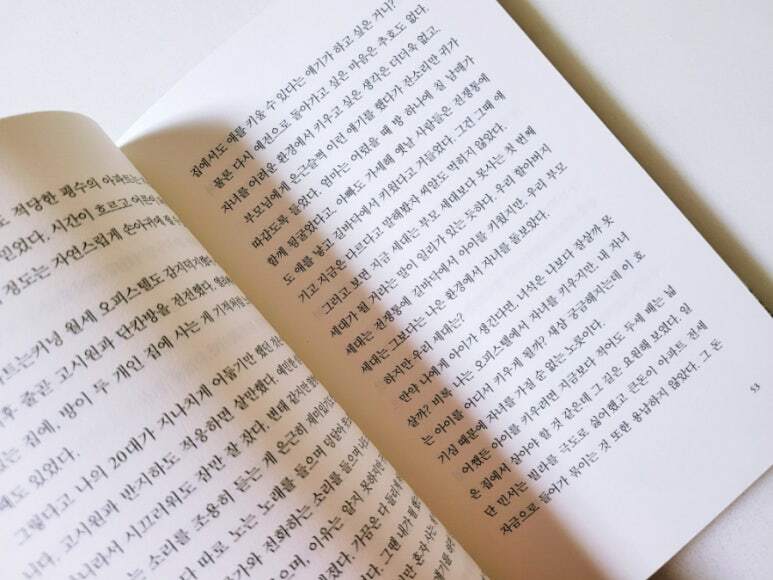 도 적당한 평수의 아파트는
믿었다. 시간이 흐르고 어른이
정도는 자연스럽게 손아귀에
트는커녕 월세 오피스텔도 감지덕지
후 줄곧 고시원과 단칸방을 전전했다.
있는 집에, 방이 두 개인 집에 사는 게
때도 있었다.
그렇다고, 나의 20대가 지나치게 어둡기만 했던
니다. 고시원과 반지하도 적응하면 살만했다.
나라서 시끄러워도 잠만 잘 잤다.
는 소리를 조용히 듣는 게 은근히
다 따로 노는 노래를 들으며
가와 전화하는 소리를 들으며
으며, 이유는 알지 못하지만
졌다. 가끔은 다
집에서도 애를 키울 수 있다는 얘기가 하고 싶은 거니?
물론 다시 예전으로 돌아가고 싶은 마음은 추호도 없다.
자녀를 어려운 환경에서 키우고 싶은 생각은 더더욱 없고.
부모님에게 은근슬쩍 이런 얘기를 했다가 잔소리만 귀가
따갑도록 들었다. 엄마는 어렸을 때 방 하나에 칠 남매가
함께 뒹굴었다고, 아빠도 가세해 옛날 사람들은 전쟁통에
도 애를 낳고 길바닥에서 키웠다고 거들었다. 그건 그때 얘
기고 지금은 다르다고 말해봤자 씨알도 먹히지 않았다.
그러고 보면 지금 세대는 부모 세대보다 못사는 첫 번째
세대가 될 거라는 말이 일리가 있는 듯하다. 우리 할아버지
세대는 전쟁통에 길바닥에서 아이를 키웠지만, 우리 부모
세대는 그보다는 나은 환경에서 자녀를 돌보았다.
하지만 우리 세대는?
만약 나에게 아이가 생긴다면, 녀석은 나보다 잘살까 못
살까? 비록 나는 오피스텔에서 자녀를 키우지만, 내 자녀
는 아이를 어디서 키우게 될까? 새삼 궁금해지는데 이 호
기심 때문에 자녀를 가질 순 없는 노릇이다.
어쨌든 아이를 키우려면 지금보다 적어도 두세 배는 넓
은 집에서 살아야 할 것 같은데 그 길은 요원해 보였다. 일
단 민서는 빌라를 극도로 싫어했고 큰돈이 아파트 전세
자금으로 들어가 묶이는 것 또한 용납하지 않았다. 그 돈
53